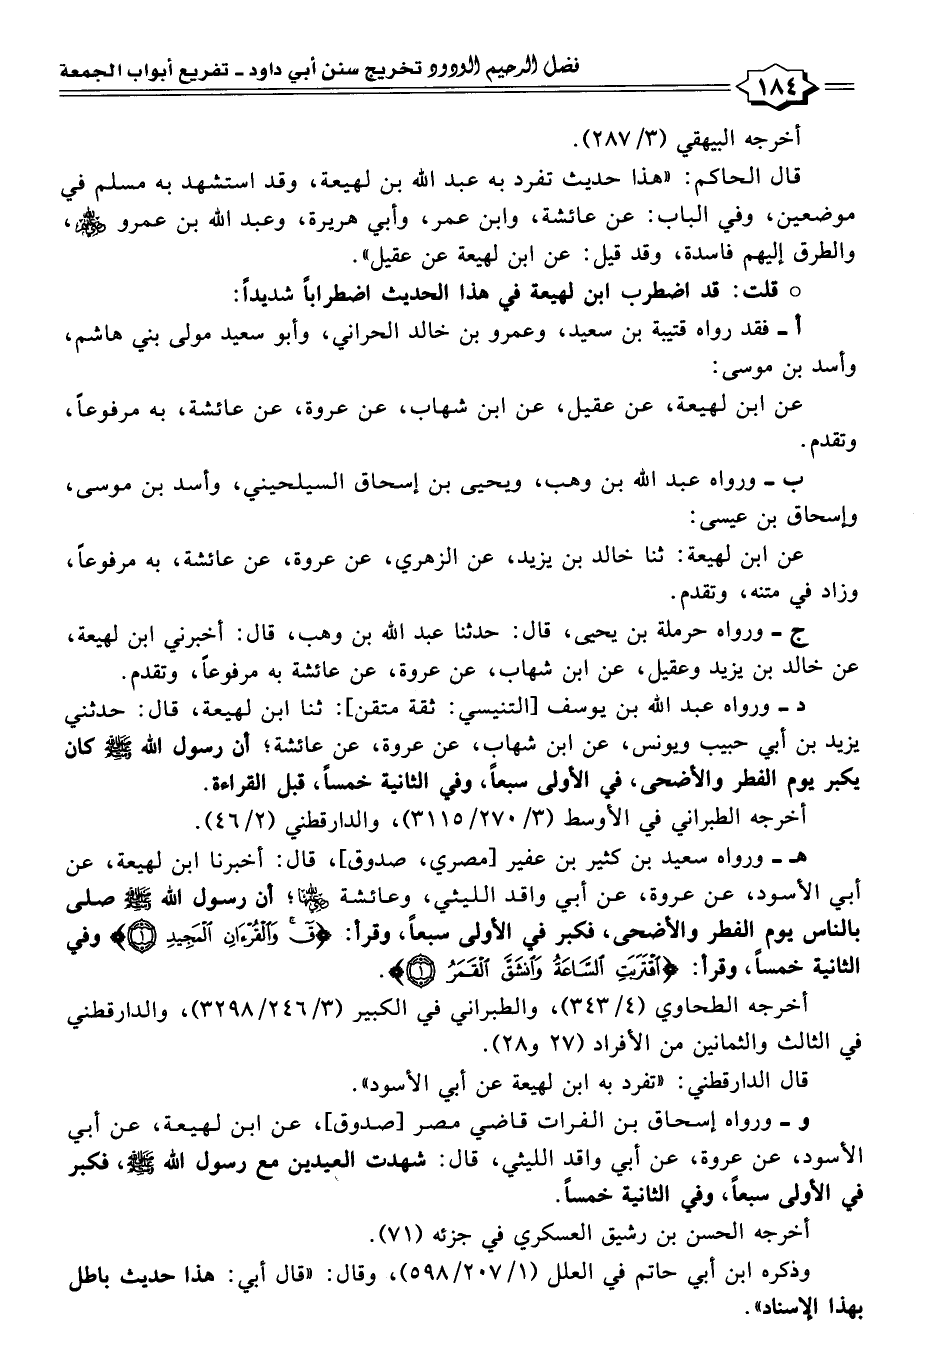 فضل الرحيم الودود تخريج سنن أبي داود ـ تفريع أبواب الجمعة
١٨٤
أخرجه البيهقي (٣/ ٢٨٧).
قال الحاكم: «هذا حديث تفرد به عبد الله بن لهيعة، وقد استشهد به مسلم في
موضعين، وفي الباب: عن عائشة، وابن عمر، وأبي هريرة، وعبد الله بن عمرو ﷺ،
والطرق إليهم فاسدة، وقد قيل: عن ابن لهيعة عن عقيل».
○ قلت: قد اضطرب ابن لهيعة في هذا الحديث اضطراباً شديداً:
أ ـ فقد رواه قتيبة بن سعيد، وعمرو بن خالد الحراني، وأبو سعيد مولى بني هاشم،
وأسد بن موسى:
عن ابن لهيعة، عن عقيل، عن ابن شهاب، عن عروة، عن عائشة، به مرفوعاً،
وتقدم.
ب ـ ورواه عبد الله بن وهب، ويحيى بن إسحاق السيلحيني، وأسد بن موسى،
وإسحاق بن عيسى:
عن ابن لهيعة: ثنا خالد بن يزيد، عن الزهري، عن عروة، عن عائشة، به مرفوعاً،
وزاد في متنه، وتقدم.
ج ـ ورواه حرملة بن يحيى، قال: حدثنا عبد الله بن وهب، قال: أخبرني ابن لهيعة،
عن خالد بن يزيد وعقيل، عن ابن شهاب، عن عروة، عن عائشة به مرفوعاً، وتقدم.
د ـ ورواه عبد الله بن يوسف [التنيسي: ثقة متقن]: ثنا ابن لهيعة، قال: حدثني
يزيد بن أبي حبيب ويونس، عن ابن شهاب، عن عروة، عن عائشة؛ أن رسول الله ﷺ كان
يكبر يوم الفطر والأضحى، في الأولى سبعاً، وفي الثانية خمساً، قبل القراءة.
أخرجه الطبراني في الأوسط (٣/ ٢٧٠/ ٣١١٥)، والدارقطني (٢/ ٤٦).
هـ ـ ورواه سعيد بن كثير بن عفير [مصري، صدوق]، قال: أخبرنا ابن لهيعة، عن
أبي الأسود، عن عروة، عن أبي واقد الليثي، وعائشة رضي الله عنها؛ أن رسول الله ﷺ صلى
بالناس يوم الفطر والأضحى، فكبر في الأولى سبعاً، وقرأ: ﴿قٓ وَٱلۡقُرۡءَانِ ٱلۡمَجِيدِ ١﴾ وفي
الثانية خمساً، وقرأ: ﴿ٱقۡتَرَبَتِ ٱلسَّاعَةُ وَٱنشَقَّ ٱلۡقَمَرُ ١﴾.
أخرجه الطحاوي (٤/ ٣٤٣)، والطبراني في الكبير (٣/ ٢٤٦/ ٣٢٩٨)، والدارقطني
في الثالث والثمانين من الأفراد (٢٧ و٢٨).
قال الدارقطني: «تفرد به ابن لهيعة عن أبي الأسود».
و ـ ورواه إسحاق بن الفرات قاضي مصر [صدوق]، عن ابن لهيعة، عن أبي
الأسود، عن عروة، عن أبي واقد الليثي، قال: شهدت العيدين مع رسول الله ﷺ، فكبر
في الأولى سبعاً، وفي الثانية خمساً.
أخرجه الحسن بن رشيق العسكري في جزئه (٧١).
وذكره ابن أبي حاتم في العلل (١/ ٢٠٧/ ٥٩٨)، وقال: «قال أبي: هذا حديث باطل
بهذا الإسناد».